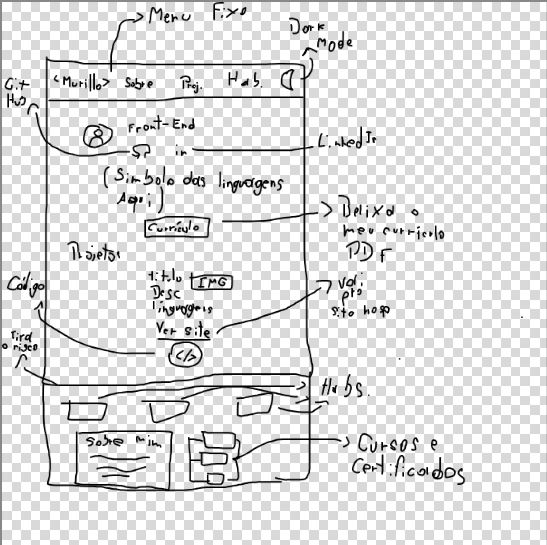 Menu Fixo
Dark
Mode
Git
Hub
<Murillo> Sobre Proj. Hab.
Front-End
in
LinkedIn
(Simbolo das linguagens
Aqui)
Currículo
Baixa o
meu curriculo
PDF
Projetos
titulo IMG
Desc
linguagens
Ver site
vai
pro
site hosp
Código
</>
Tira
o risco
Habs.
Sobre mim
Cursos e
Certificados